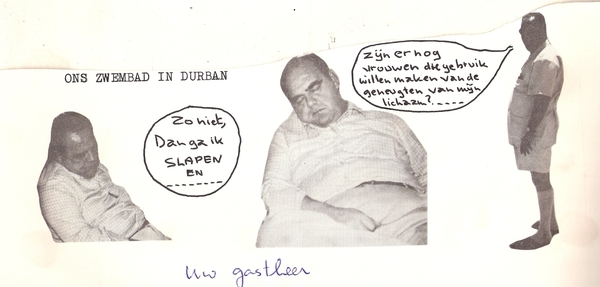 ONS ZWEMBAD IN DURBAN
zijn er nog
vrouwen die gebruik
willen maken van de
geneugten van mijn
lichaam?.....
Zo niet,
Dan ga ik
SLAPEN
EN
--------
Uw gastheer